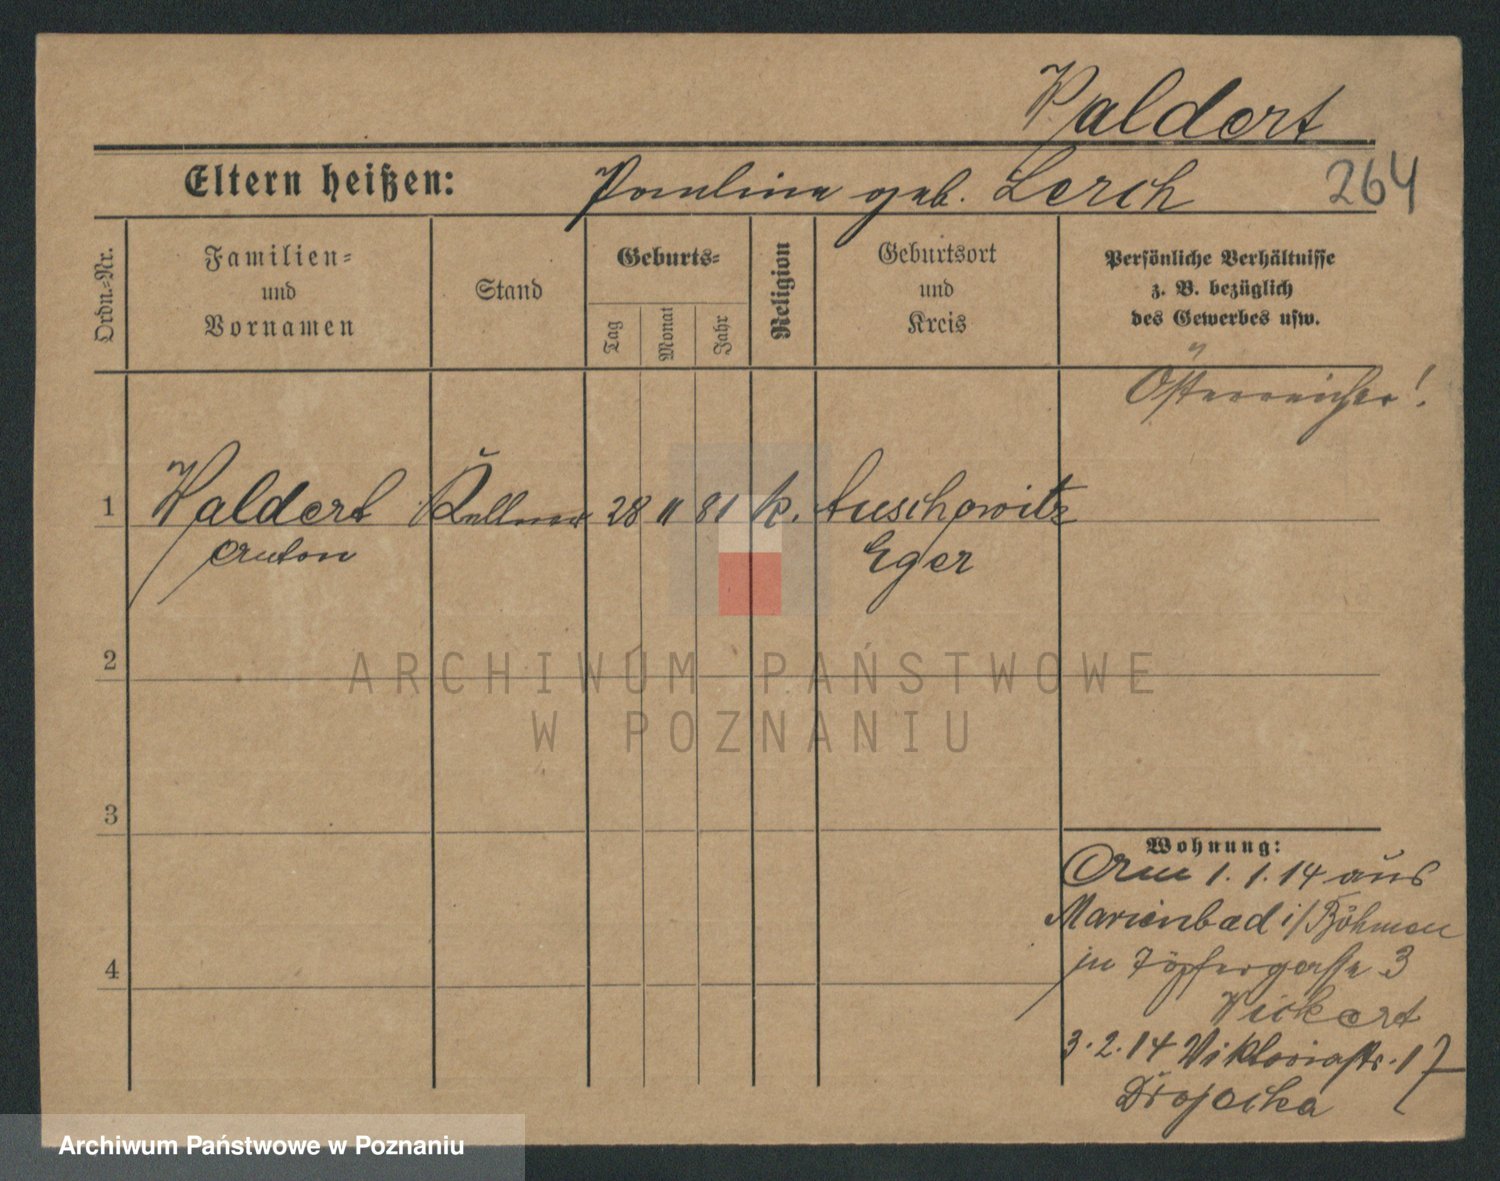 Waldert
Eltern heißen: Paulina geb. Lerch 264
Ordn.-Nr.
Familien-
und
Vornamen
Stand
Geburts-
Tag
Monat
Jahr
Religion
Geburtsort
und
Kreis
Persönliche Verhältnisse
z. B. bezüglich
des Gewerbes usw.
Österreicher!
1 Waldert Kellner 28 11 81 k. Auschowitz
Anton Eger
2
ARCHIWUM PAŃSTWOWE
W POZNANIU
3
Wohnung:
Am 1.1.14 aus
Marienbad i/Böhmen
4
in Töpfergasse 3
Wickert
3.2.14 Viktoriastr. 17
Archiwum Państwowe w Poznaniu